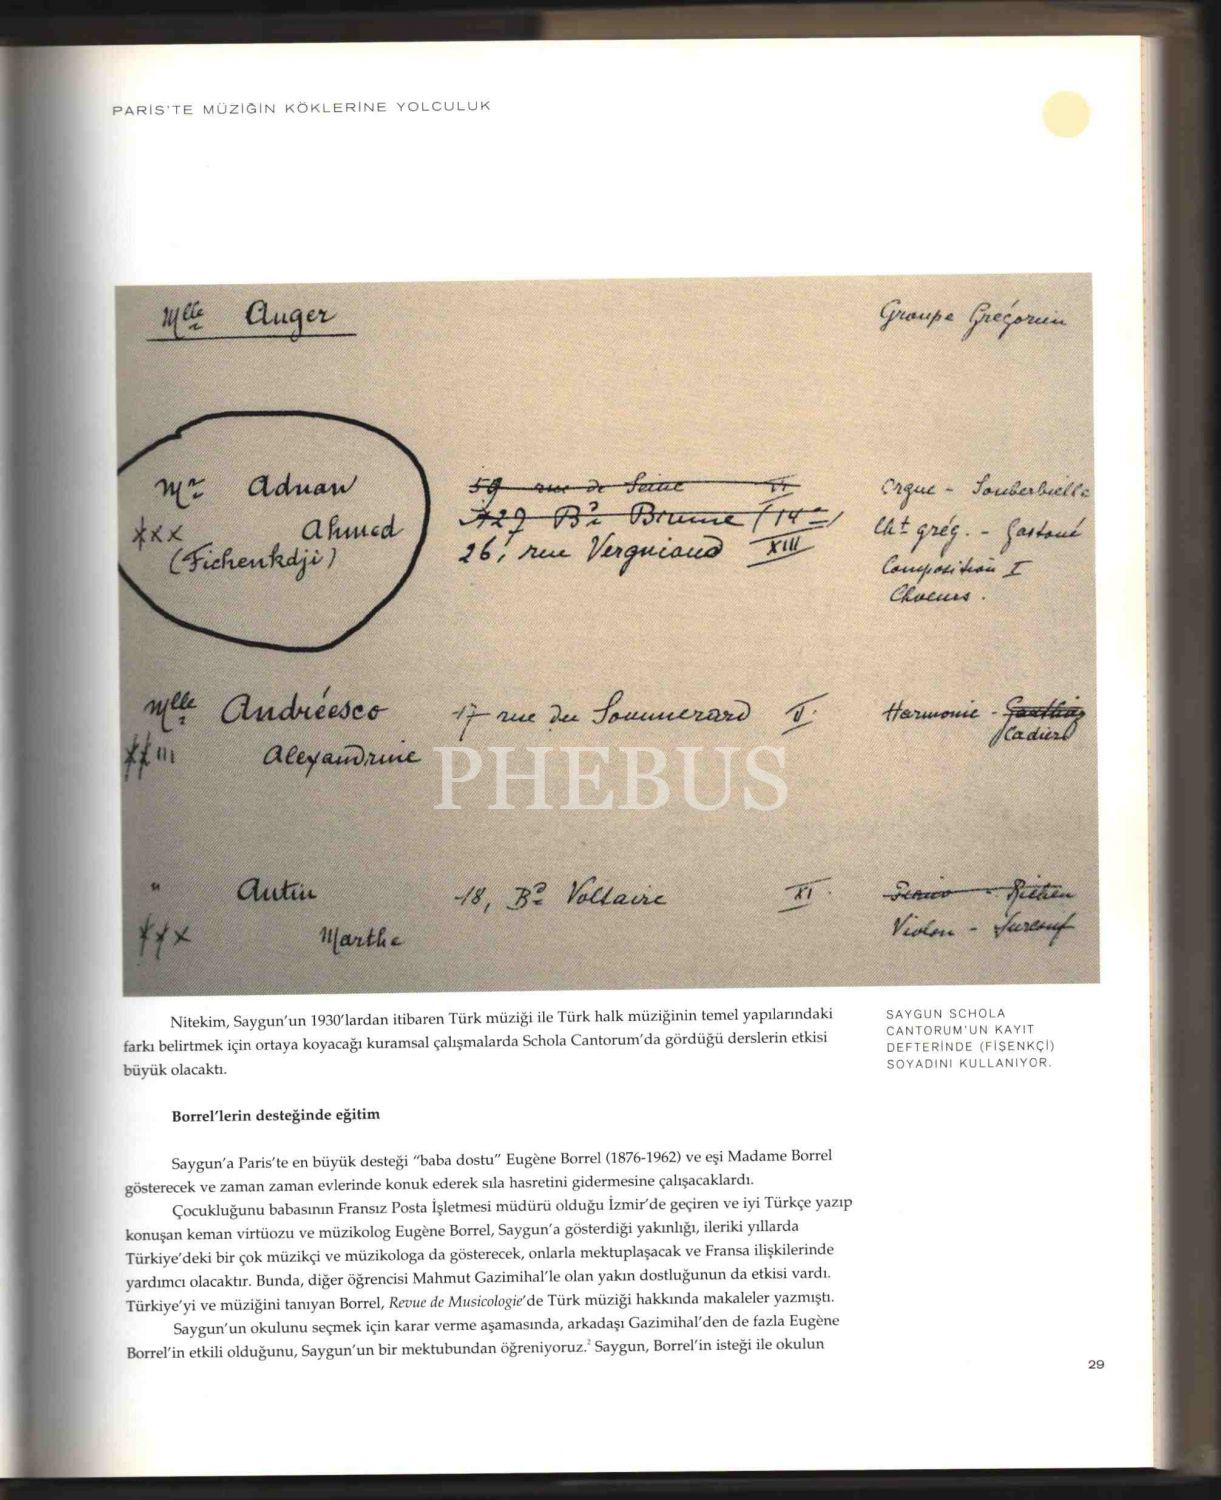 PARİS'TE MÜZİĞİN KÖKLERİNE YOLCULUK
Mlle Auger
Groupe Grégorien
Mr Adnan
59 rue de Seine VI
Orgue - Souberbielle
xxx Ahmed
127 Bd Brune (14e)
Cht grég. - Gastoué
(Fichenkdji)
26, rue Vergniaud XIII
Composition I
Chœurs.
Mlle Andréesco
17 rue du Sommerard V.
Harmonie -
Alexandrine
PHEBUS
" Autin
18, Bd Voltaire XI.
xxx Marthe
Violon - Surcouf
Nitekim, Saygun'un 1930'lardan itibaren Türk müziği ile Türk halk müziğinin temel yapılarındaki
farkı belirtmek için ortaya koyacağı kuramsal çalışmalarda Schola Cantorum'da gördüğü derslerin etkisi
büyük olacaktı.
SAYGUN SCHOLA
CANTORUM'UN KAYIT
DEFTERİNDE (FİŞENKÇİ)
SOYADINI KULLANIYOR.
Borrel'lerin desteğinde eğitim
Saygun'a Paris'te en büyük desteği "baba dostu" Eugène Borrel (1876-1962) ve eşi Madame Borrel
gösterecek ve zaman zaman evlerinde konuk ederek sıla hasretini gidermesine çalışacaklardı.
Çocukluğunu babasının Fransız Posta İşletmesi müdürü olduğu İzmir'de geçiren ve iyi Türkçe yazıp
konuşan keman virtüozu ve müzikolog Eugène Borrel, Saygun'a gösterdiği yakınlığı, ileriki yıllarda
Türkiye'deki bir çok müzikçi ve müzikologa da gösterecek, onlarla mektuplaşacak ve Fransa ilişkilerinde
yardımcı olacaktır. Bunda, diğer öğrencisi Mahmut Gazimihal'le olan yakın dostluğunun da etkisi vardı.
Türkiye'yi ve müziğini tanıyan Borrel, Revue de Musicologie'de Türk müziği hakkında makaleler yazmıştı.
Saygun'un okulunu seçmek için karar verme aşamasında, arkadaşı Gazimihal'den de fazla Eugène
Borrel'in etkili olduğunu, Saygun'un bir mektubundan öğreniyoruz.² Saygun, Borrel'in isteği ile okulun
29